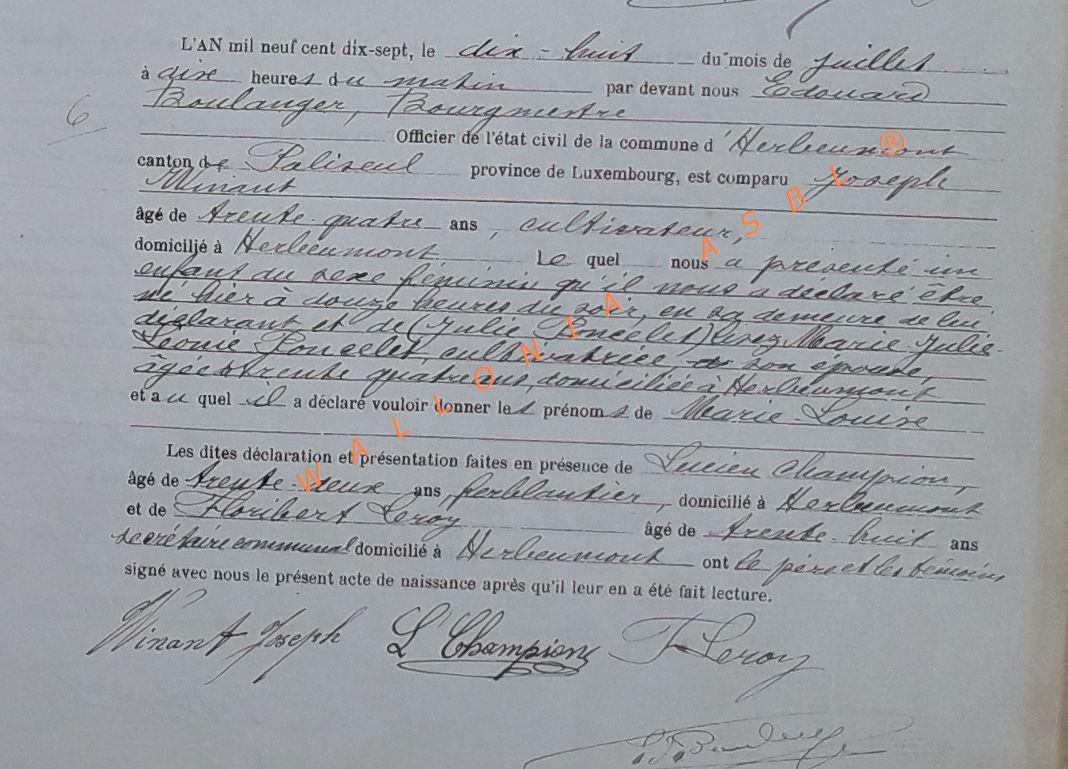 L'AN mil neuf cent dix-sept, le dix-huit du mois de juillet
à dix heures du matin par devant nous Edouard
Boulanger, Bourgmestre
6
Officier de l'état civil de la commune d'Herbeumont
canton de Paliseul province de Luxembourg, est comparu Joseph
Winant
âgé de trente-quatre ans, cultivateur,
domicilié à Herbeumont Le quel nous a présenté un
enfant du sexe féminin qu'il nous a déclaré être
né hier à douze heures du soir, en sa demeure de lui
déclarant et de (Julie Poncelet) lisez Marie-Julie-
Léonie Poncelet, cultivatrice, son épouse,
âgée trente quatre ans, domiciliée à Herbeumont
et au quel il a déclaré vouloir donner les prénoms de Marie Louise
Les dites déclaration et présentation faites en présence de Lucien Champion,
âgé de trente-deux ans ferblantier, domicilié à Herbeumont
et de Floribert Leroy âgé de trente-huit ans
secrétaire communal domicilié à Herbeumont ont le père et les témoins
signé avec nous le présent acte de naissance après qu'il leur en a été fait lecture.
Winant Joseph L Champion F Leroy
WALLONIA ASBL ®